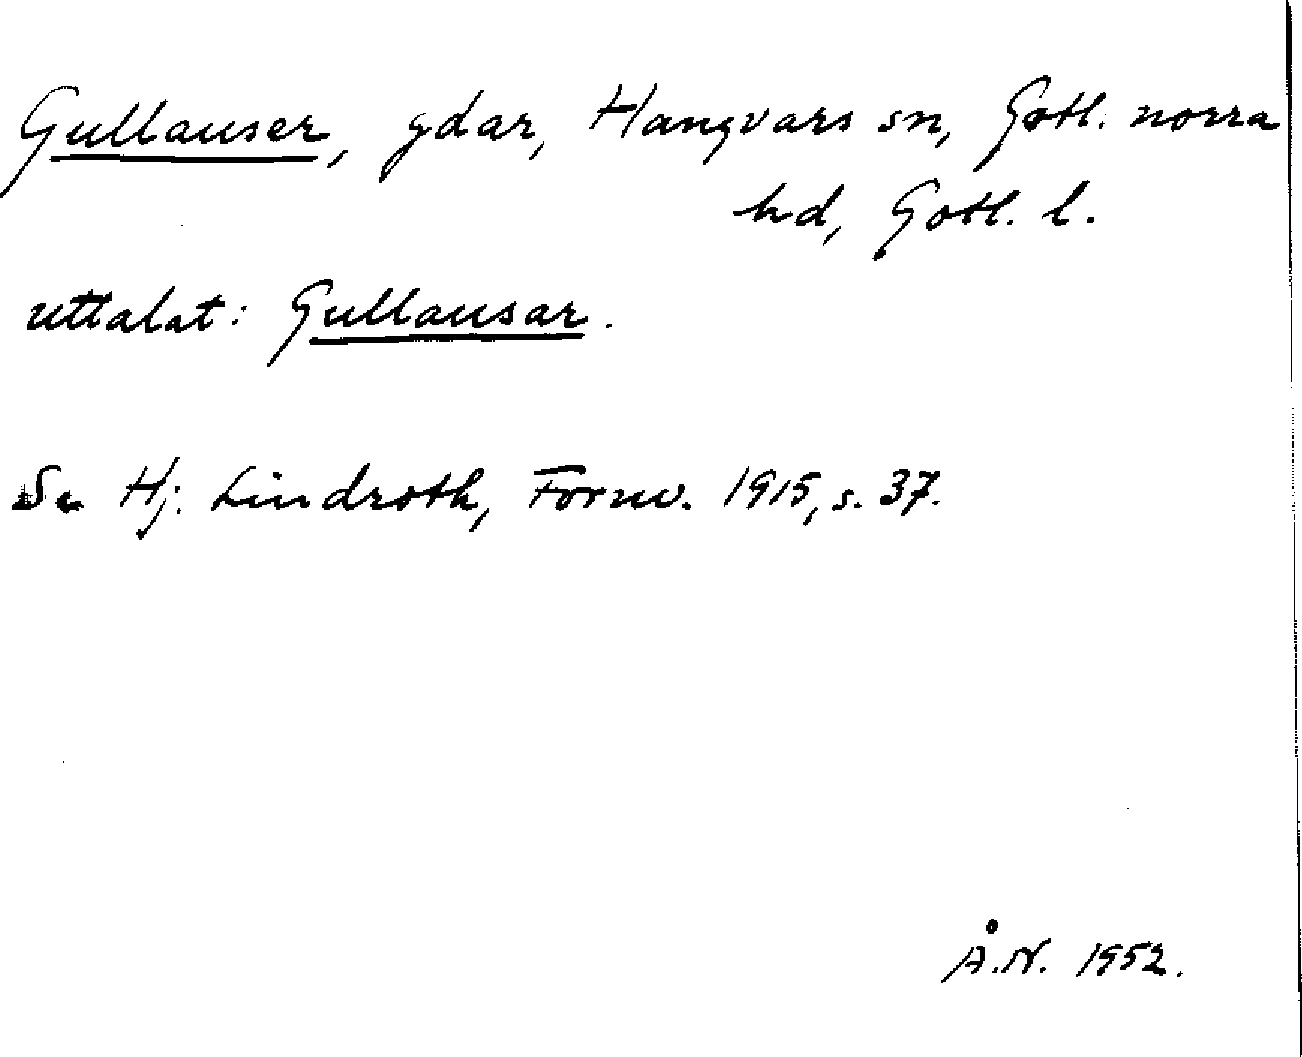 Gullauser, gdar, Hangvars sn, Gotl. norra
hd, Gotl. l.
uttalat: Gullausar.
Se Hj. Lindroth, Fornv. 1915, s. 37.
Å.N. 1952.